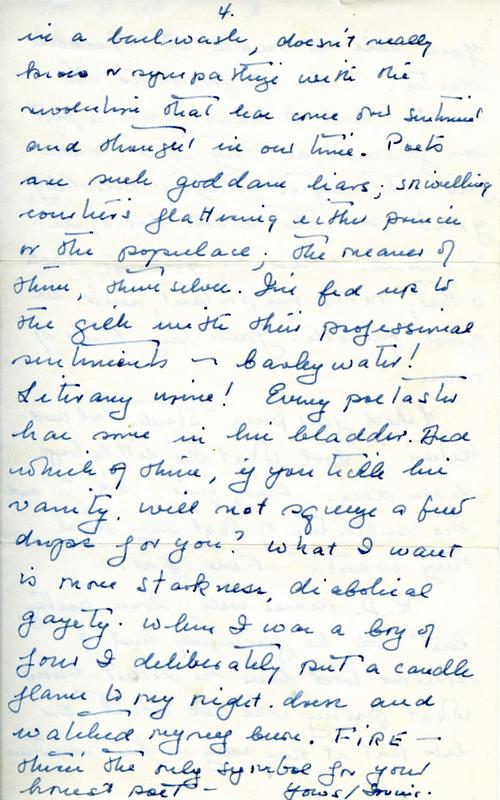 4.
in a backwash, doesn't really
know or sympathize with the
revolution that has come over sentiment
and thought in our time. Poets
are such goddam liars; snivelling
courtiers flattering either prince
or the populace; the meaner of
them, themselves. I'm fed up to
the gills with their professional
sentiments - barley water!
Literary urine! Every poetaster
has some in his bladder. And
which of them, if you tickle his
vanity, will not squeeze a few
drops for you? What I want
is more starkness, diabolical
gayety. When I was a boy of
four I deliberately put a candle
flame to my night-dress and
watched myself burn. FIRE -
there the only symbol for your
honest poet - Yours / Irving.